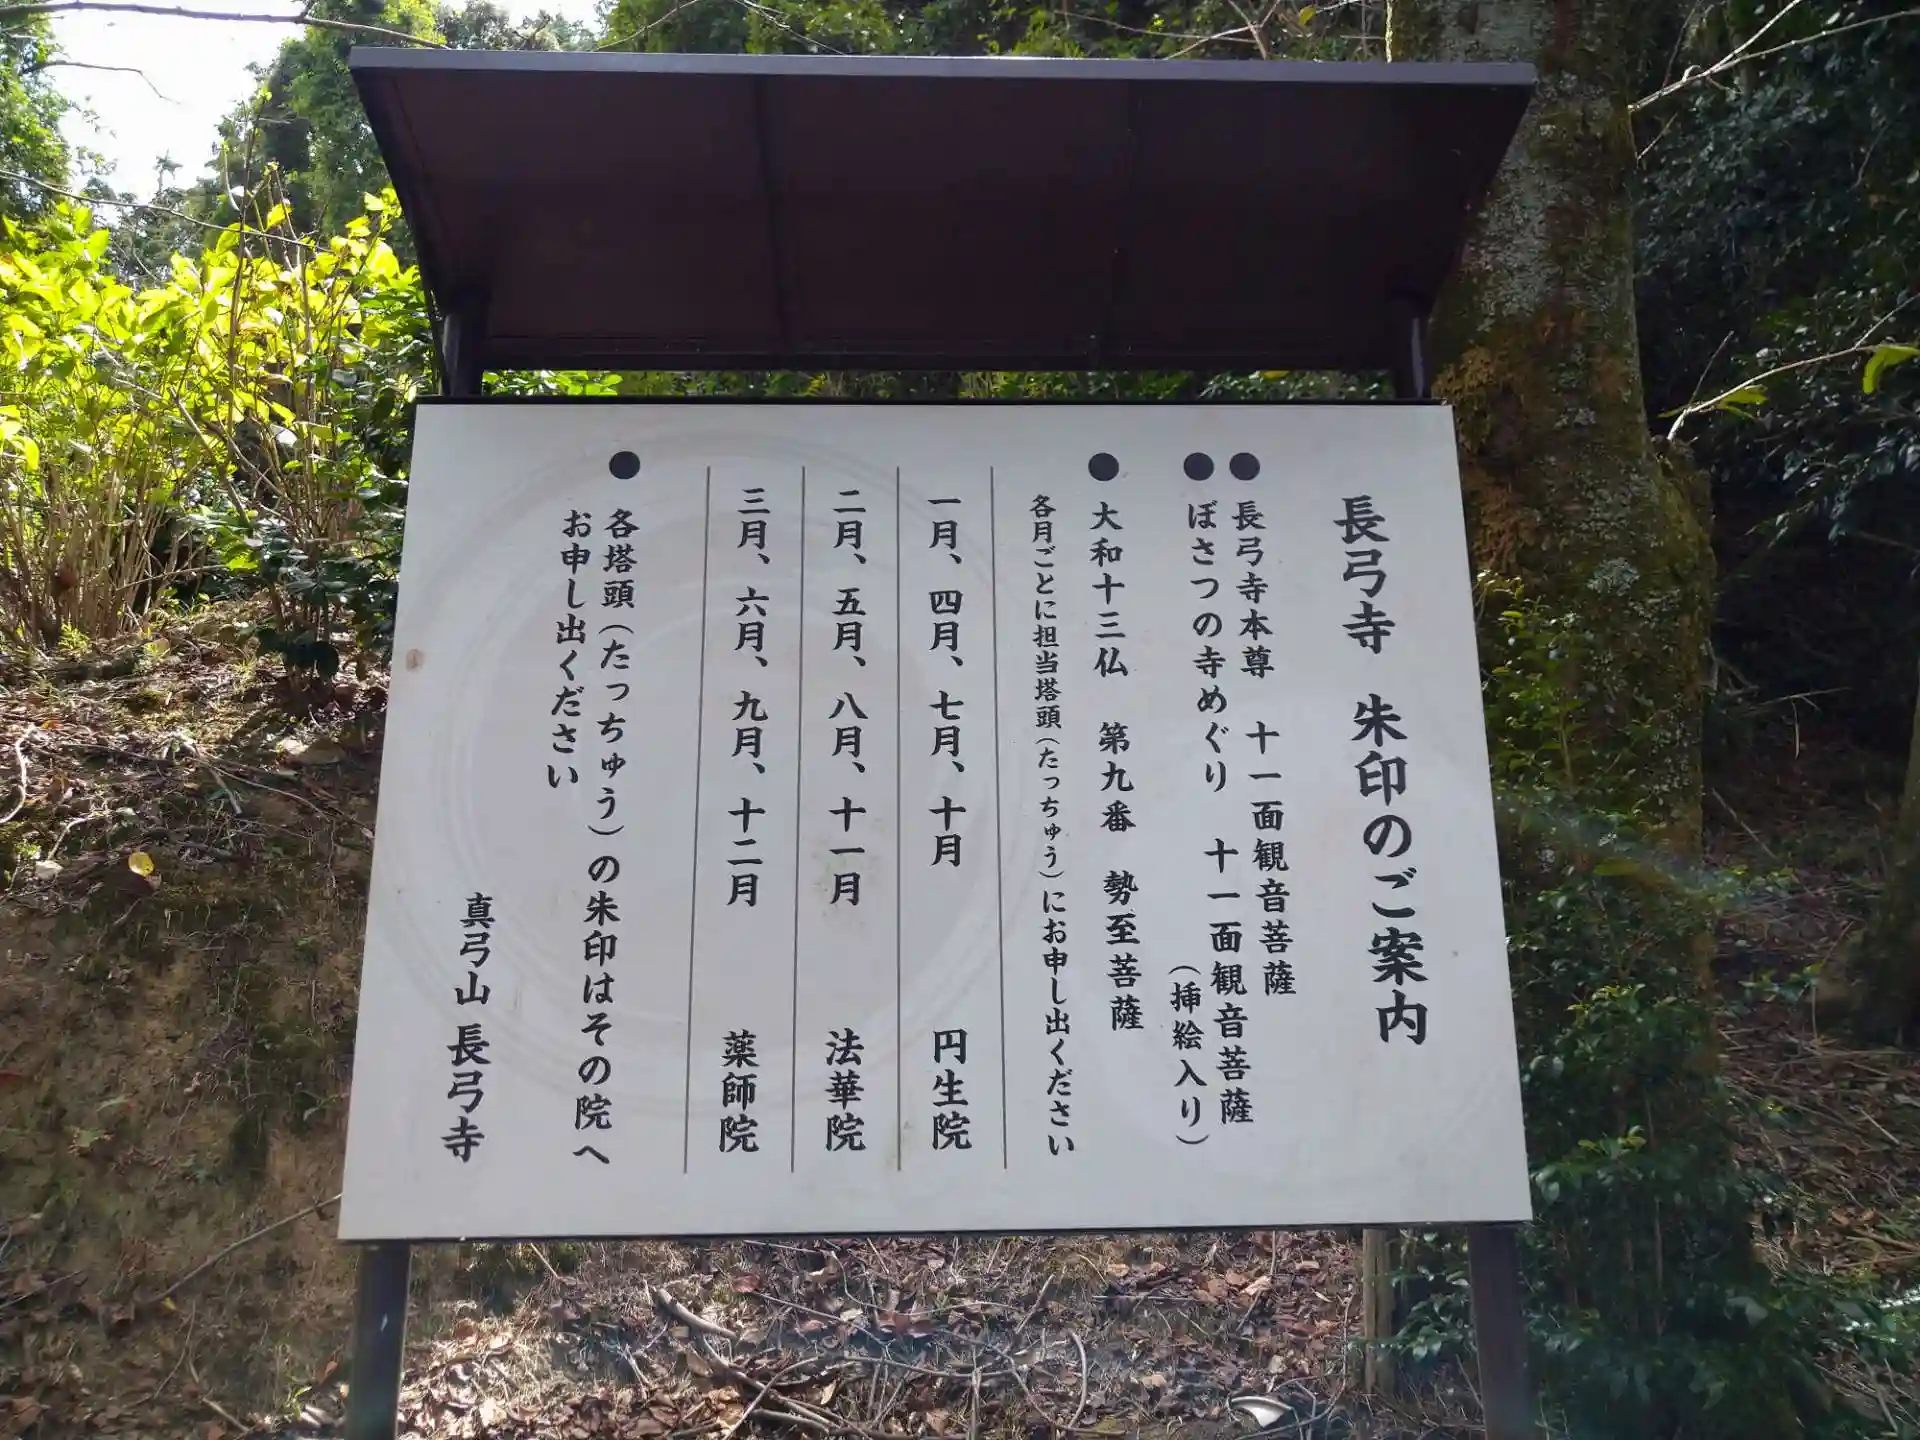 長弓寺　朱印のご案内
●長弓寺本尊　十一面観音菩薩
●ぼさつの寺めぐり　十一面観音菩薩
（挿絵入り）
●大和十三仏　第九番　勢至菩薩
各月ごとに担当塔頭（たっちゅう）にお申し出ください
一月、四月、七月、十月　円生院
二月、五月、八月、十一月　法華院
三月、六月、九月、十二月　薬師院
●各塔頭（たっちゅう）の朱印はその院へ
お申し出ください
真弓山 長弓寺